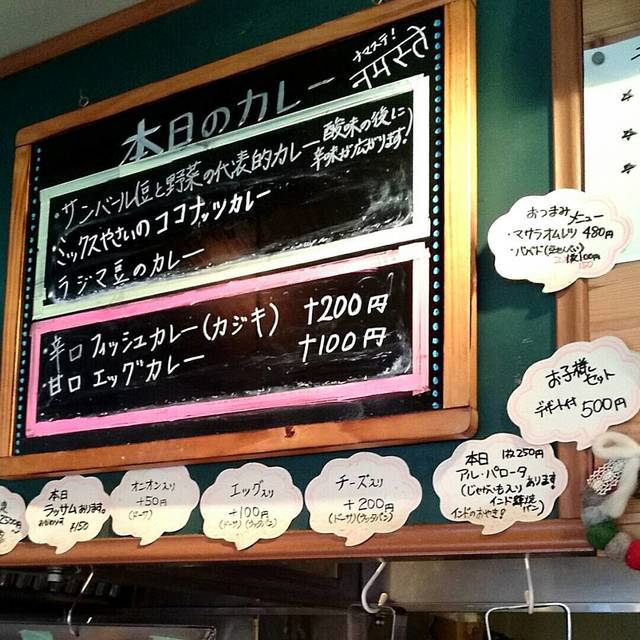 本日のカレー
ナマステ!
・サンバール(豆と野菜の代表的カレー 酸味の後に
辛味が広がります!)
・ミックスやさいのココナッツカレー
・ラジマ豆のカレー
・辛口 フィッシュカレー(カジキ) +200円
・甘口 エッグカレー +100円
おつまみメニュー
・マサラオムレツ 480円
・パパド
2枚100円
お子様セット
デザート付 500円
本日
ラッサムあります。
+150
オニオン入り
+50円
(ドーサ)
エッグ入り
+100円
(ドーサ)(ウッタパン)
チーズ入り
+200円
(ドーサ)(ウッタパン)
本日 1枚250円
アル・パロータ
(じゃがいも入り) あります!
インドのおやき!